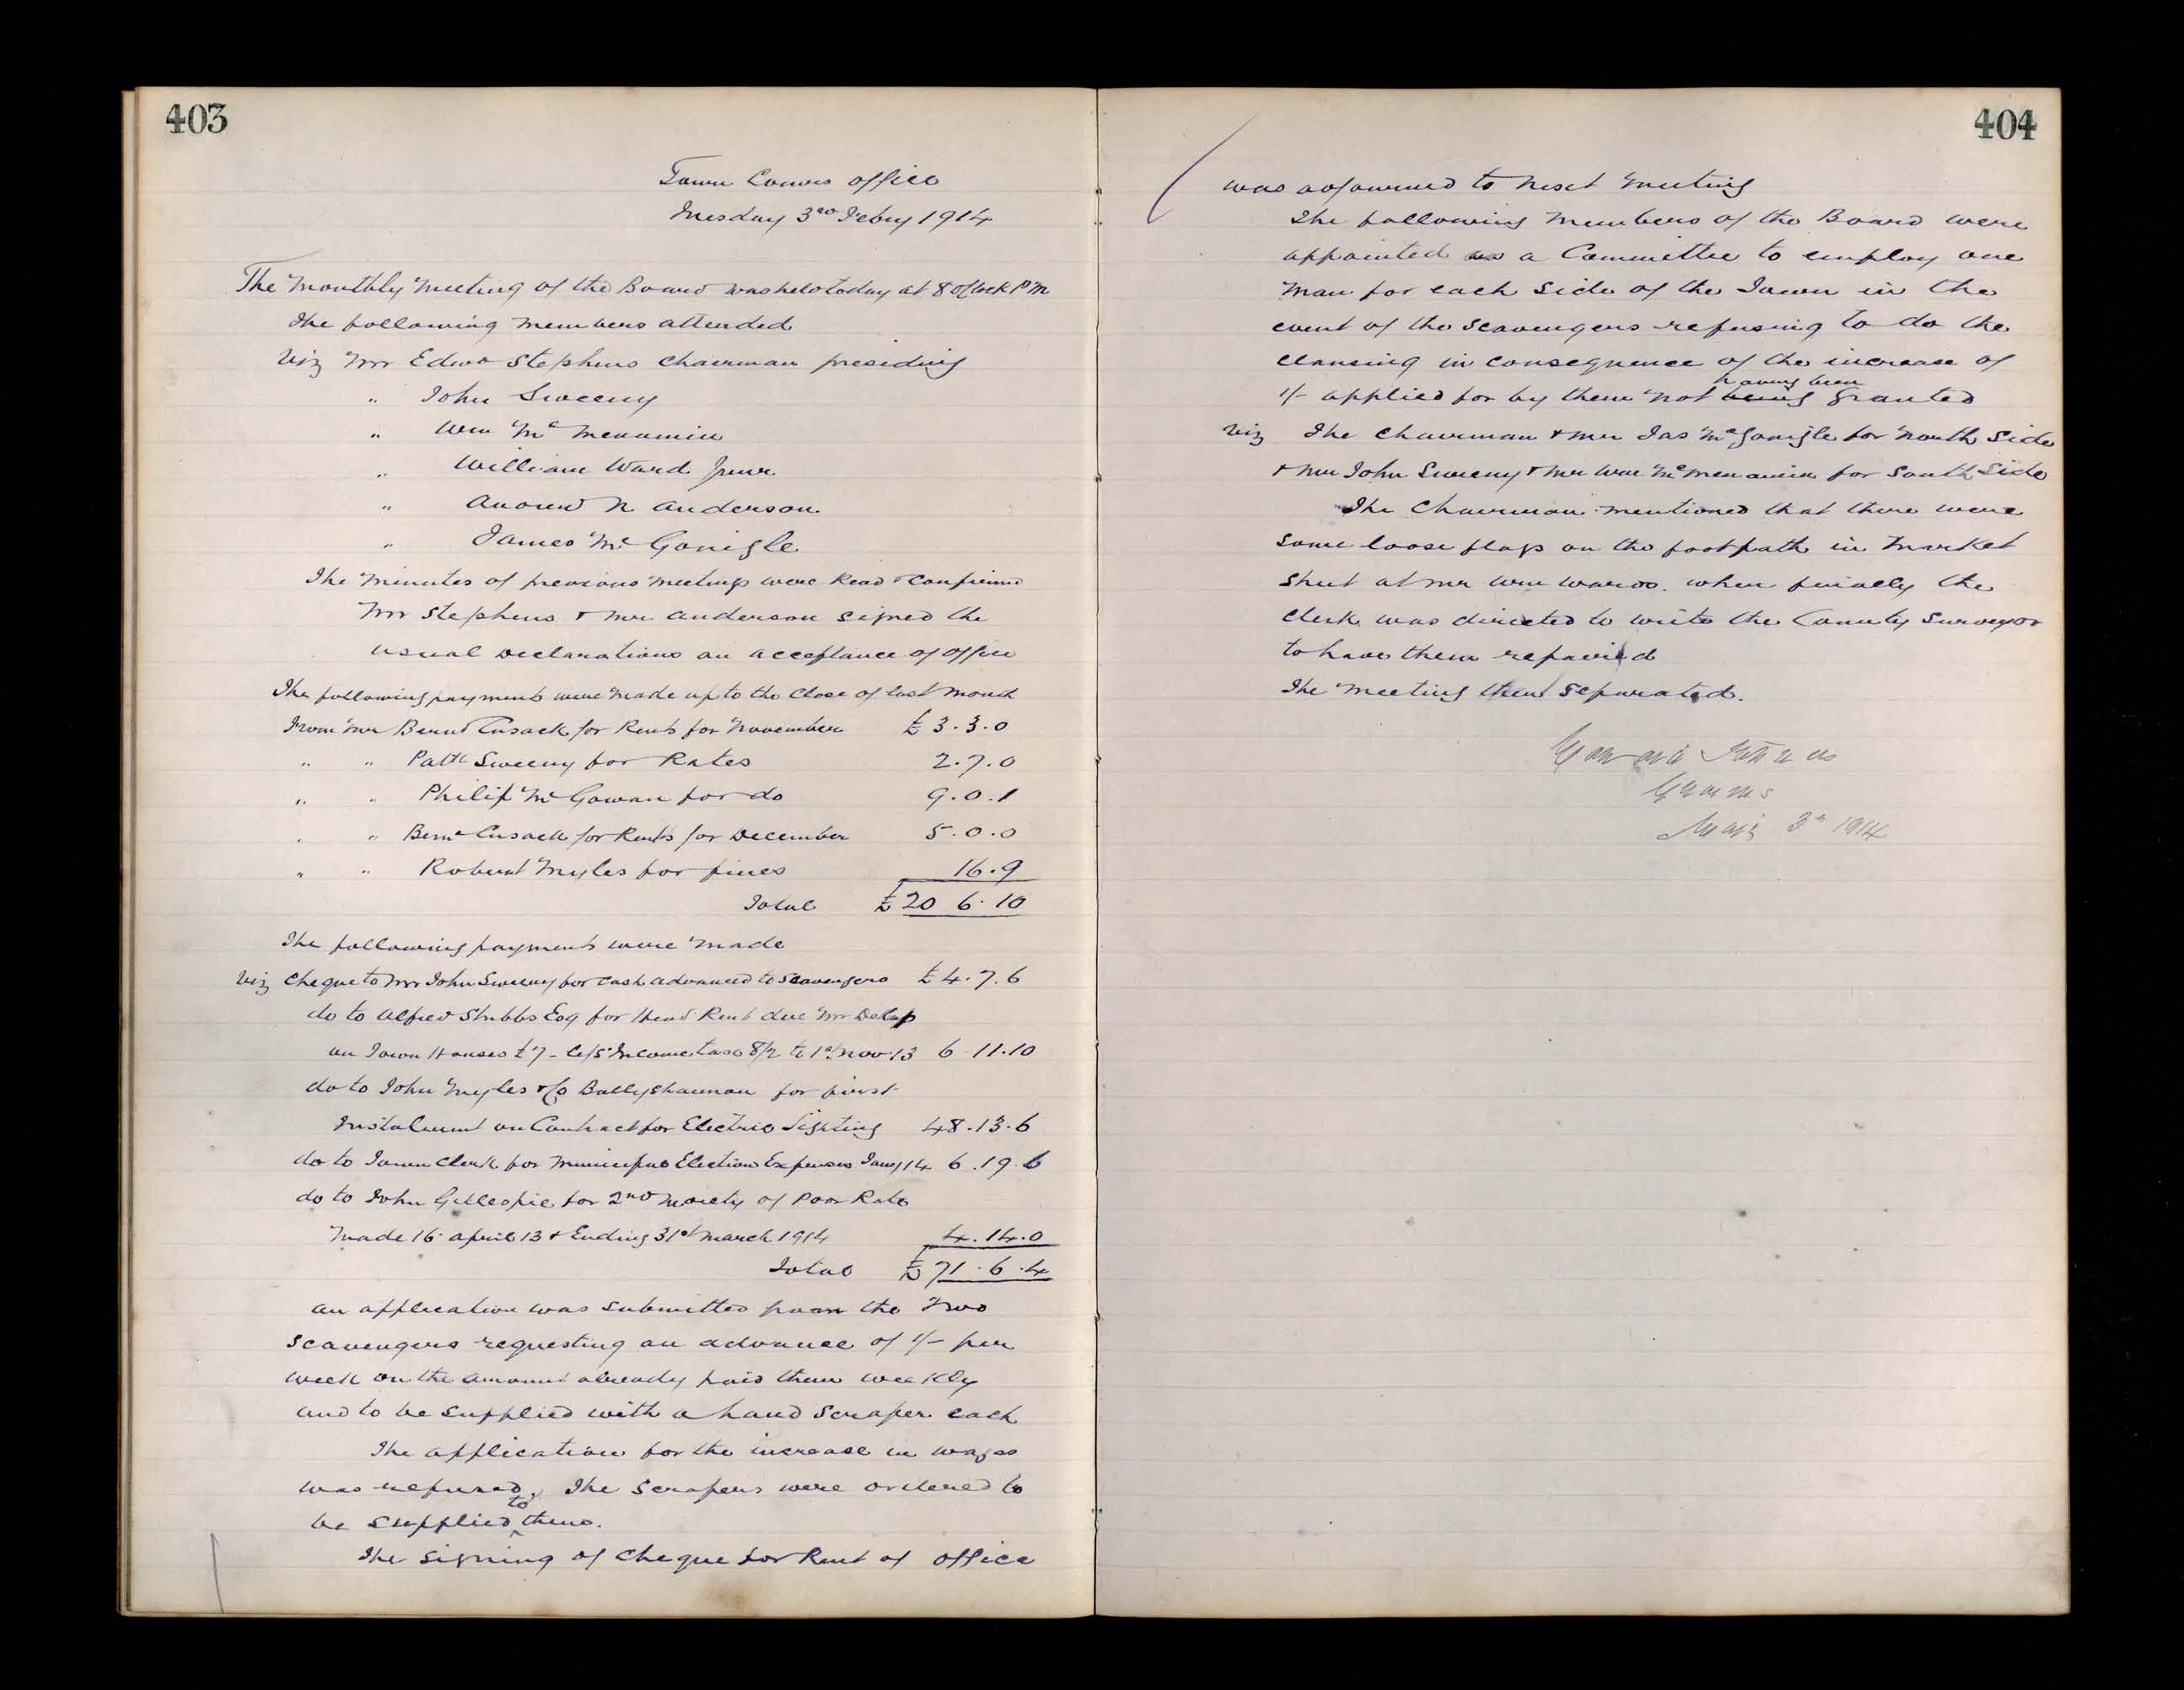 403
Town Comrs Office
Tuesday 3rd Feby 1914
The Monthly Meeting of the Board was held today at 8 oClock P M
The following Members attended
Viz Mr Edwd Stephens Chairman presiding
" John Sweeny
" Wm Mc Menamin
" William Ward Junr.
" Andrew N Anderson
" James Mc Gonigle
The Minutes of previous Meetings were Read & Confirmed
Mr Stephens & Mr Anderson signed the
usual Declarations on acceptance of Office
The following payments were Made up to the Close of last Month
From Mr Bernd Cusack for Rents for November £ 3.3.0
" " Patk Sweeny for Rates 2.7.0
" " Philip Mc Gowan for do 9.0.1
" " Bernd Cusack for Rents for December 5.0.0
" " Robert Myles for fines 16.9
Total £ 20 6.10
The following payments were Made
Viz Cheque to Mr John Sweeny for Cash advanced to Scavengers £ 4.7.6
do to Alfred Stubbs Esq for Head Rent due Mr Delap
on Town Houses £7- Income tax 8/2 to 1st Nov 13 6.11.10
do to John Myles & Co Ballyshannon for first
Instalment on Contract for Electric Lighting 48.13.6
do to Town Clerk for Municipal Election Expenses Jany 14 6.19.6
do to John Gillespie for 2nd Moiety of Poor Rate
Made 16 April 13 & Ending 31st March 1914 4.14.0
Total £ 71.6.4
An application was submitted from the Two
Scavengers requesting an advance of 1/- per
week on the amount already paid them weekly
and to be supplied with a hand scraper each
The application for the increase in wages
was refused, The scrapers were ordered to
be supplied to them.
The signing of Cheque for Rent of Office
404
was adjourned to next Meeting
The following Members of the Board were
appointed as a Committee to employ one
Man for each side of the Town in the
event of the Scavengers refusing to do the
Clansing in consequence of the increase of
1/- applied for by them not being having been Granted
Viz The Chairman & Mr Jas McGonigle for North Side
& Mr John Sweeny & Mr Wm McMenamin for South Side
The Chairman mentioned that there were
some loose flags on the footpath in Market
Street at Mr Wm Wards. when finally the
Clerk was directed to write the County Surveyor
to have them repaired
The Meeting then Separated.
3rd 1914